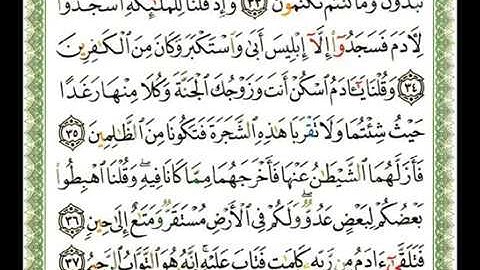 تُبْدُونَ وَمَا كُنتُمْ تَكْتُمُونَ ٣٣ وَإِذْ قُلْنَا لِلْمَلَـٰٓئِكَةِ ٱسْجُدُوا۟
لِـَٔادَمَ فَسَجَدُوٓا۟ إِلَّآ إِبْلِيسَ أَبَىٰ وَٱسْتَكْبَرَ وَكَانَ مِنَ ٱلْكَـٰفِرِينَ
٣٤ وَقُلْنَا يَـٰٓـَٔادَمُ ٱسْكُنْ أَنتَ وَزَوْجُكَ ٱلْجَنَّةَ وَكُلَا مِنْهَا رَغَدًا
حَيْثُ شِئْتُمَا وَلَا تَقْرَبَا هَـٰذِهِ ٱلشَّجَرَةَ فَتَكُونَا مِنَ ٱلظَّـٰلِمِينَ ٣٥
فَأَزَلَّهُمَا ٱلشَّيْطَـٰنُ عَنْهَا فَأَخْرَجَهُمَا مِمَّا كَانَا فِيهِ ۖ وَقُلْنَا ٱهْبِطُوا۟
بَعْضُكُمْ لِبَعْضٍ عَدُوٌّ ۖ وَلَكُمْ فِى ٱلْأَرْضِ مُسْتَقَرٌّ وَمَتَـٰعٌ إِلَىٰ حِينٍ ٣٦
فَتَلَقَّىٰٓ ءَادَمُ مِن رَّبِّهِۦ كَلِمَـٰتٍ فَتَابَ عَلَيْهِ ۚ إِنَّهُۥ هُوَ ٱلتَّوَّابُ ٱلرَّحِيمُ ٣٧